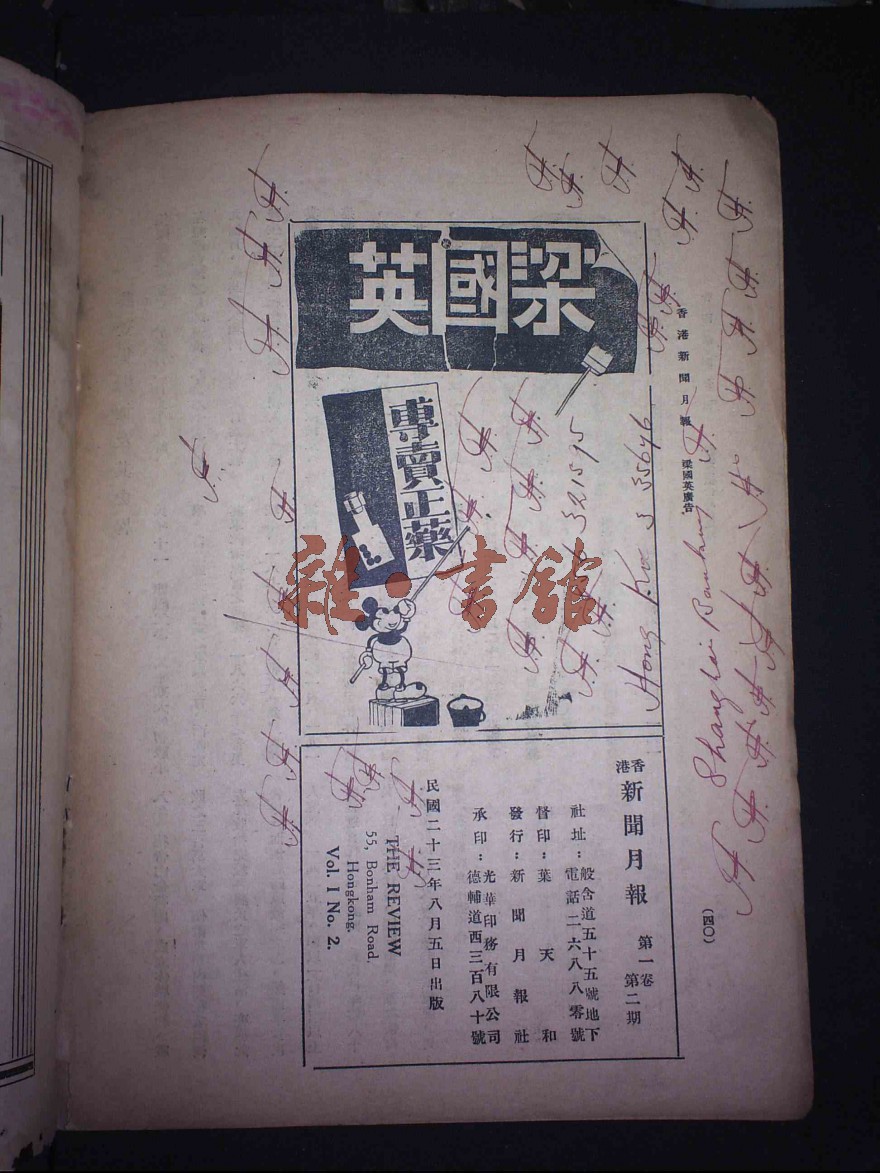 香港新聞月報
梁國英廣告
(四〇)
梁國英
專賣正藥
雜·書館
香港
新聞月報
第一卷
第二期
社址：般含道五十五號地下
電話二六八八零號
督印：葉天和
發行：新聞月報社
承印：光華印務有限公司
德輔道西三百八十號
民國二十三年八月五日出版
THE REVIEW
55, Bonham Road,
Hongkong.
Vol. I No. 2.
Shanghai Banking
Hong Ko 3 35696
321595